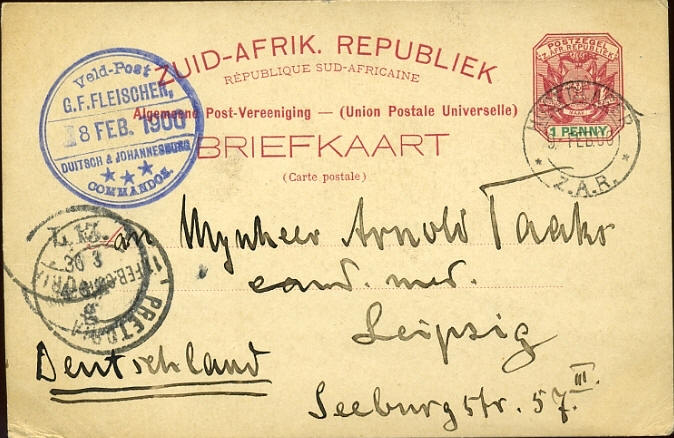 ZUID-AFRIK. REPUBLIEK
RÉPUBLIQUE SUD-AFRICAINE
Algemeene Post-Vereeniging — (Union Postale Universelle)
BRIEFKAART
(Carte postale)
POSTZEGEL
Z. AFR. REPUBLIEK
1 PENNY
Veld-Post
G.F. FLEISCHER,
8 FEB. 1900
DUITSCH & JOHANNESBURG
COMMANDOS.
FEB.00
Z.A.R.
PRETORIA
An Mynheer Arnold
cand. med.
Leipzig
Deutschland
Seeburgstr. 57 III.